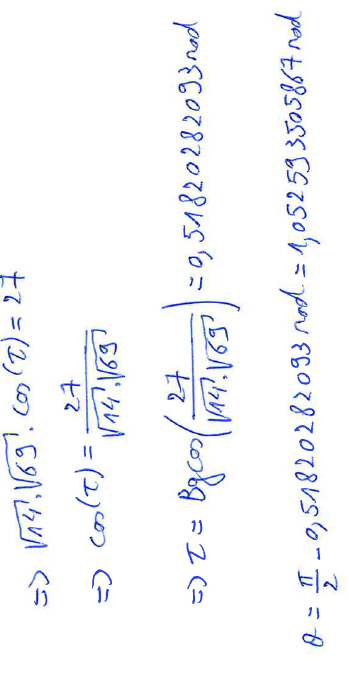 => √14.√69.cos(τ) = 27
=> cos(τ) = 27/(√14.√69)
=> τ = Bgcos(27/(√14.√69)) = 0,51820282093 rad
θ = π/2 - 0,51820282093 rad = 1,05259350587 rad